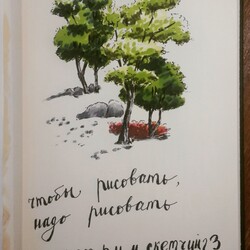 чтобы рисовать,
надо рисовать
скетчинг